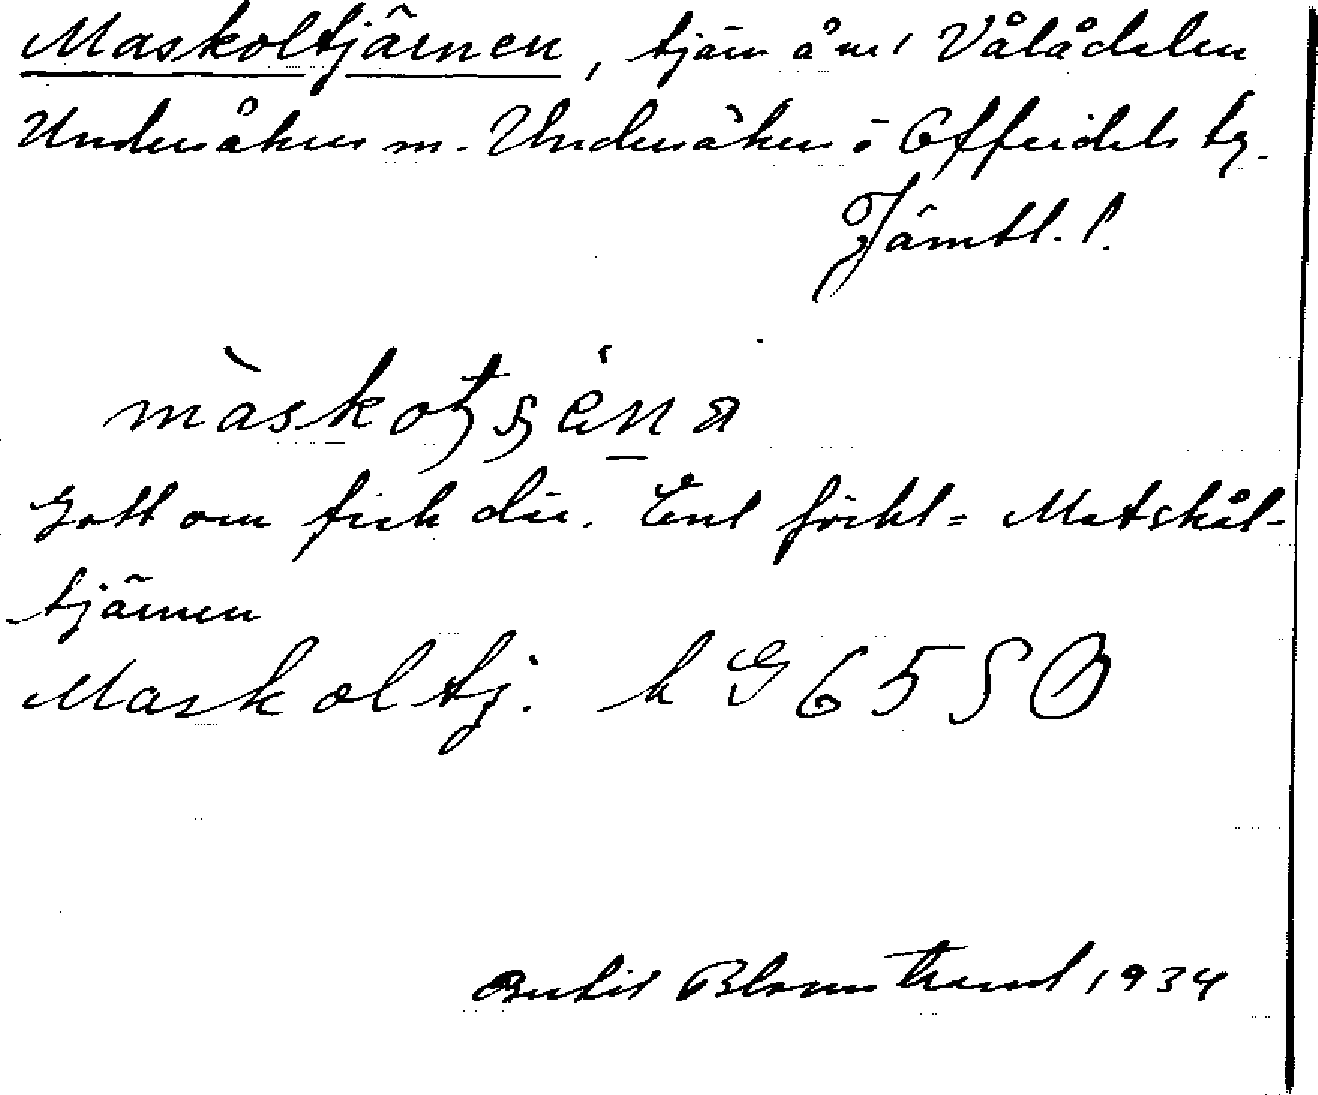 Maskoltjärnen, tjärn å nr 1 Vålådalen
Undersåkers sn. Undersåkers o Offerdals tg.
Jämtl. l.
màskoʈʂæ̀ɳa
Gott om fisk där. Enl förkl = Matskål-
tjärnen
Maskoltj. k G 65 SO
Bertil Blomstrand, 1934